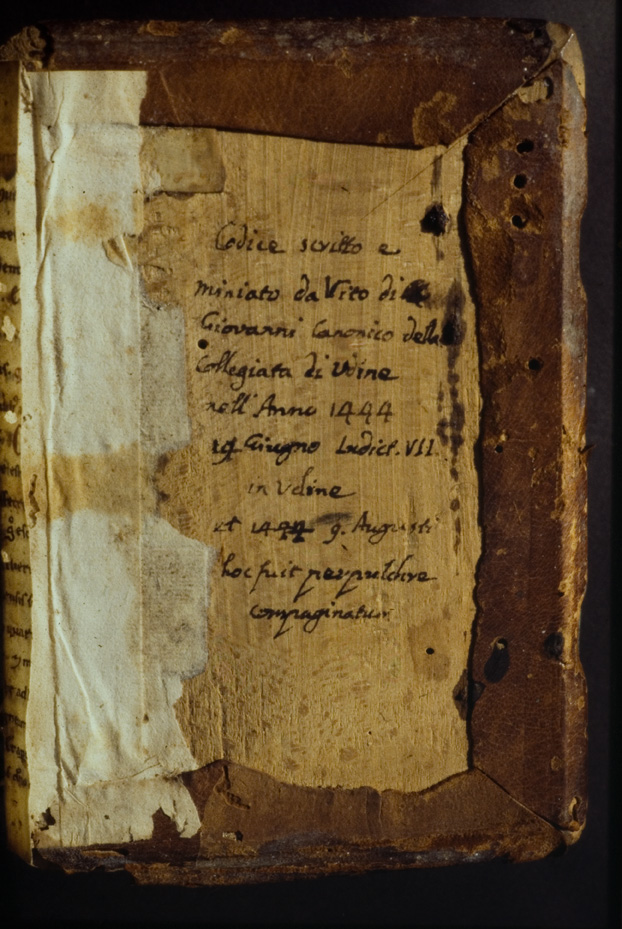 Codice scritto e
miniato da Vito di
Giovanni Canonico della
Collegiata di Udine
nell'Anno 1444
Giugno Indict. VII.
in Udine
et 9. Augusti
hoc fuit perpulchre
compaginatum